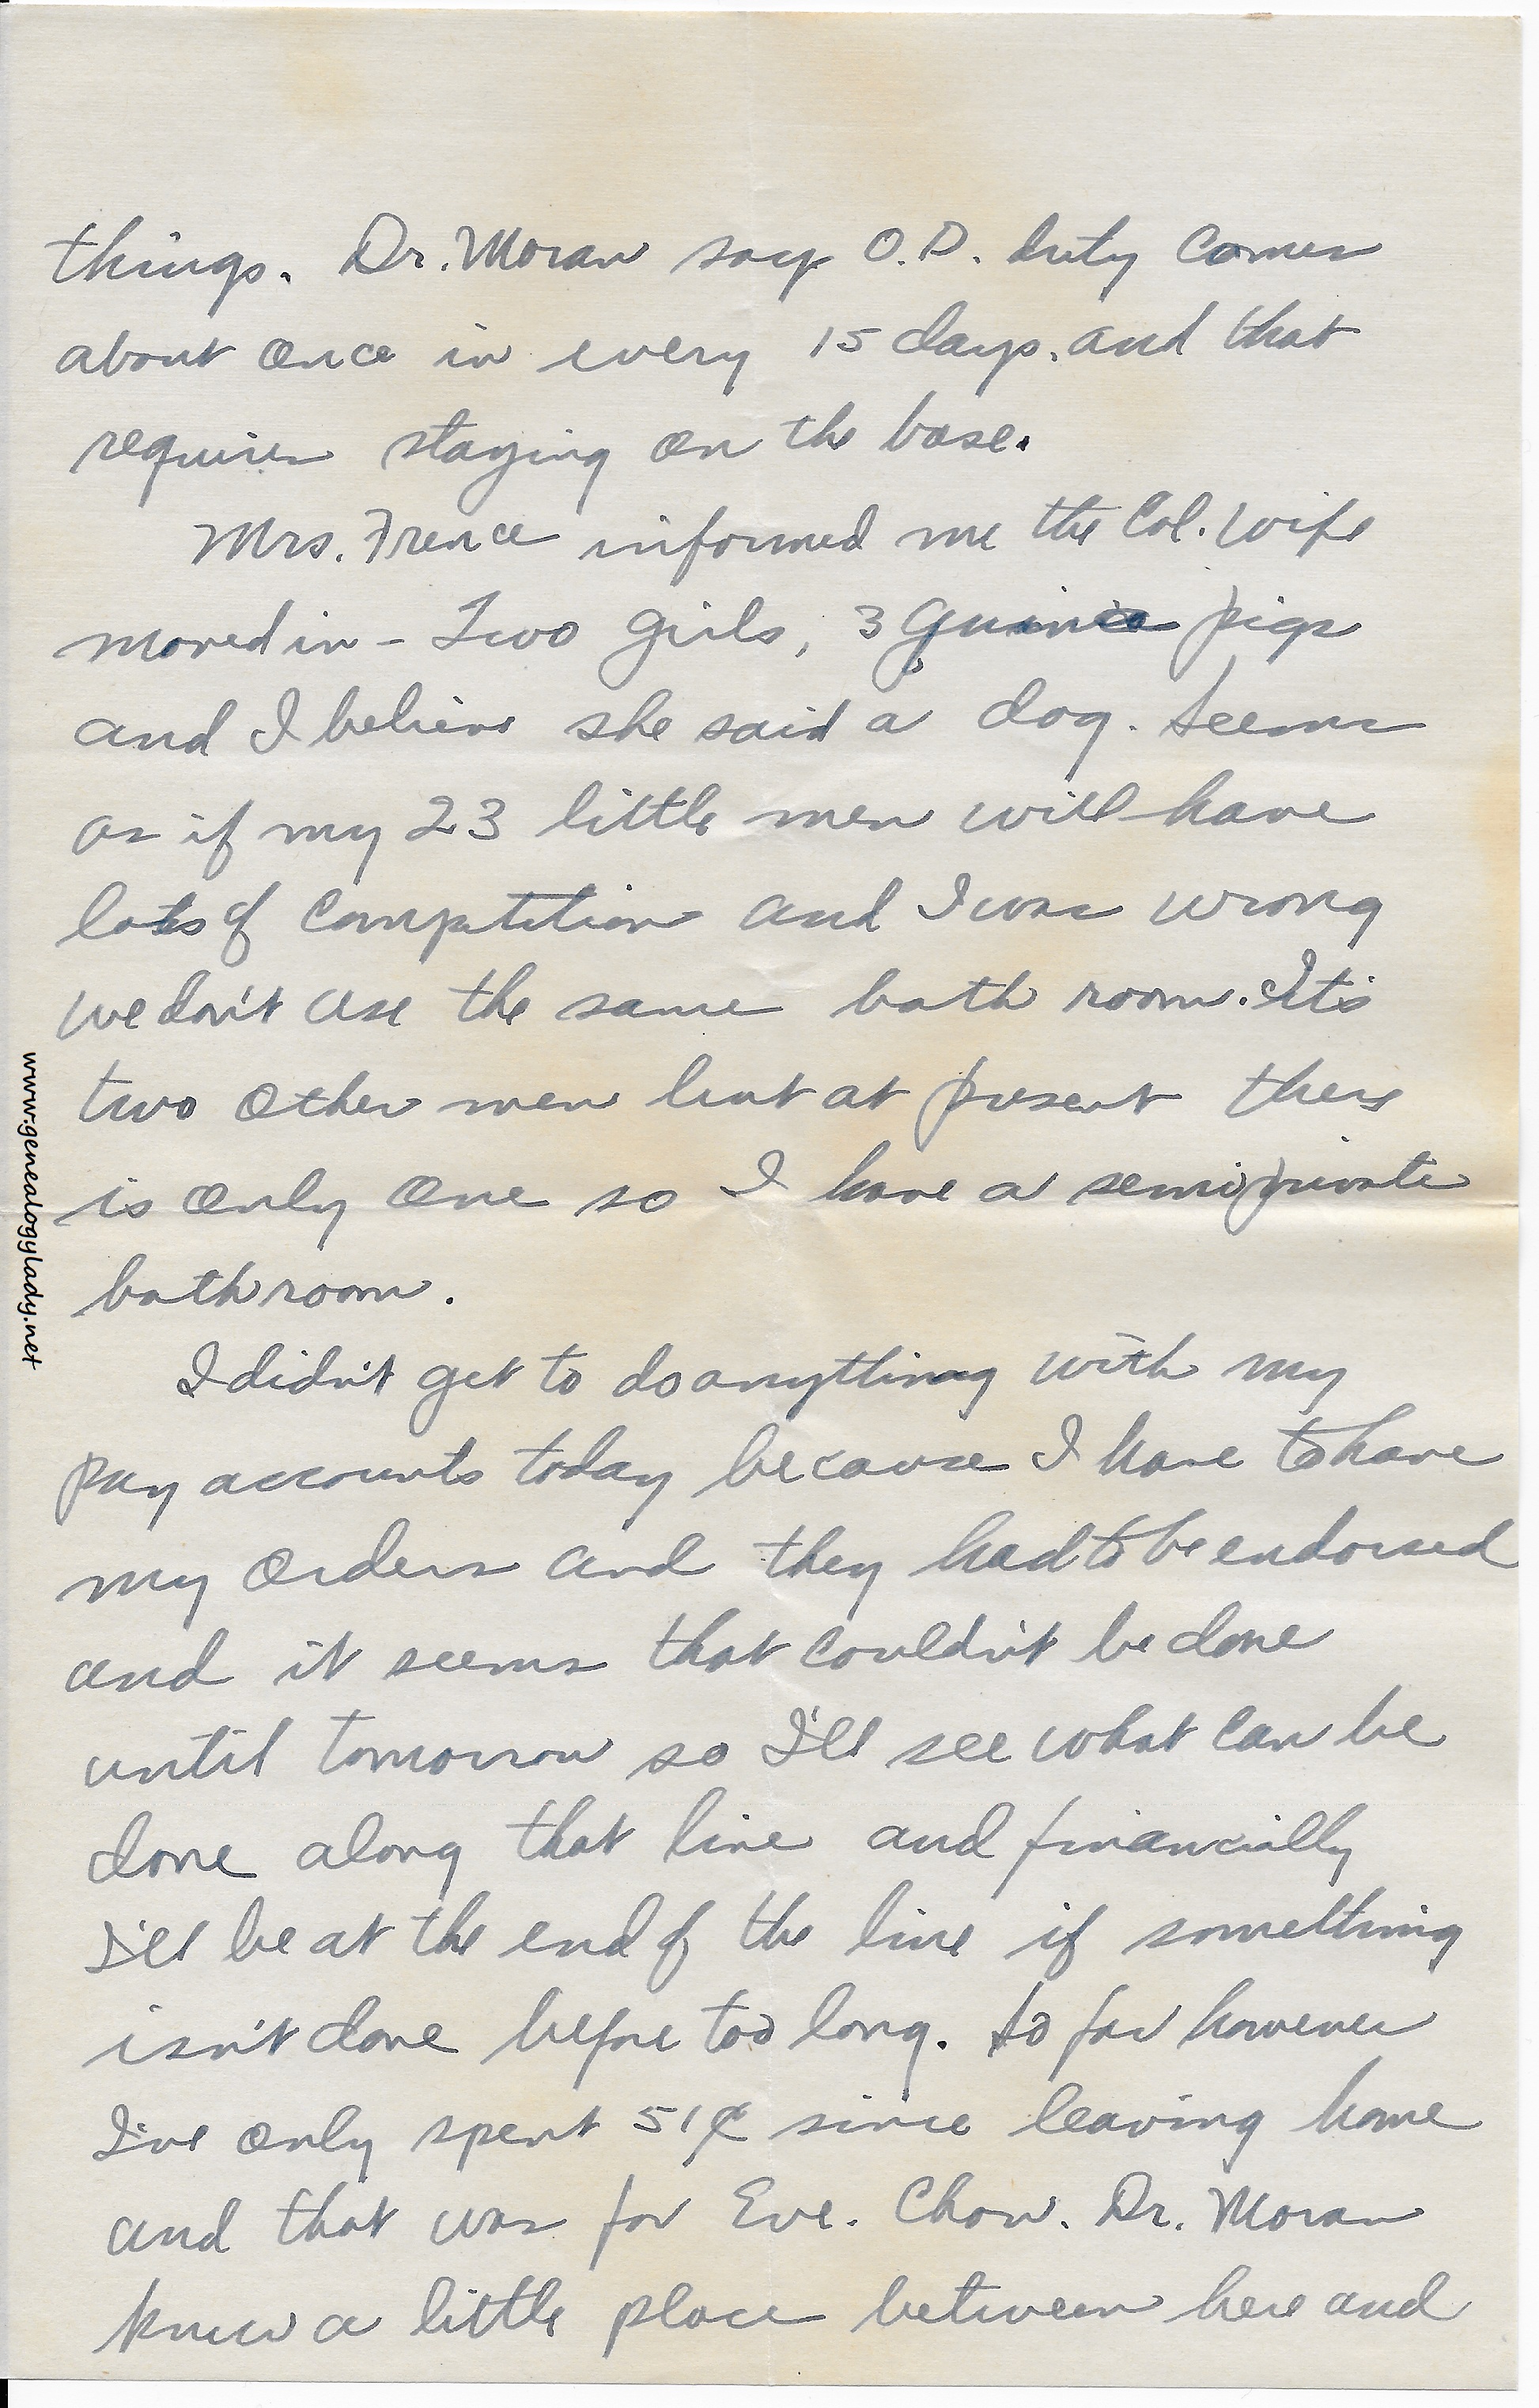 things. Dr. Moran says O.D. duty comes
about once in every 15 days. and that
requires staying on the base.
Mrs. France informed me the Col. wife
moved in - Two girls, 3 guinea pigs
and I believe she said a dog. Seems
as if my 23 little men will have
lots of competition and I was wrong
we don't use the same bath room. It's
two other men but at present there
is only one so I have a semiprivate
bathroom.
I didn't get to do anything with my
pay accounts today because I have to have
my orders and they had to be endorsed
and it seems that couldn't be done
until tomorrow so I'll see what can be
done along that line and financially
I'll be at the end of the line if something
isn't done before too long. So far however
I've only spent 51¢ since leaving home
and that was for Eve. Chow. Dr. Moran
knew a little place between here and
www.genealogylady.net